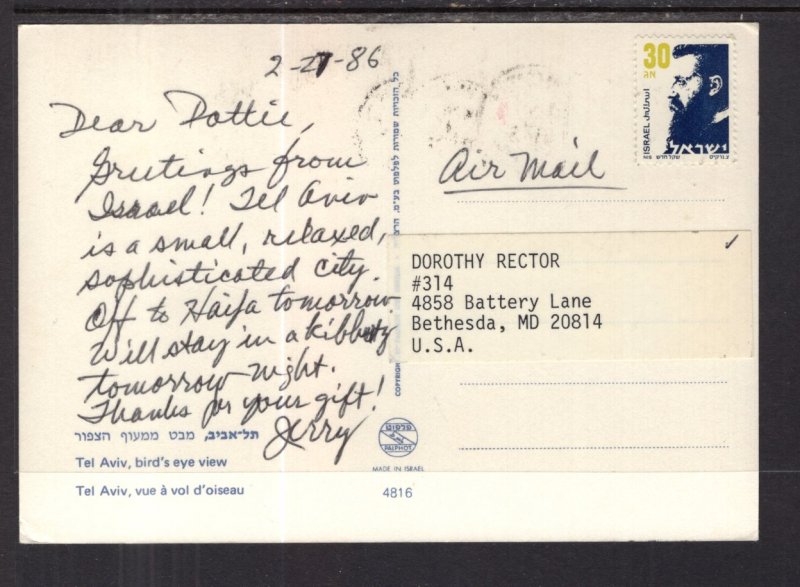 2-27-86
Dear Dottie,
Greetings from
Israel! Tel Aviv
is a small, relaxed,
sophisticated city.
Off to Haifa tomorrow.
Will stay in a kibbutz
tomorrow night.
Thanks for your gift!
Jerry
תל-אביב, מבט ממעוף הצפור
Tel Aviv, bird's eye view
Tel Aviv, vue à vol d'oiseau
כל הזכויות שמורות לפלפוט בע"מ,
פלפוט
PALPHOT
MADE IN ISRAEL
4816
30
אג
ISRAEL اسرائيل
ישראל
Air Mail
DOROTHY RECTOR
#314
4858 Battery Lane
Bethesda, MD 20814
U.S.A.